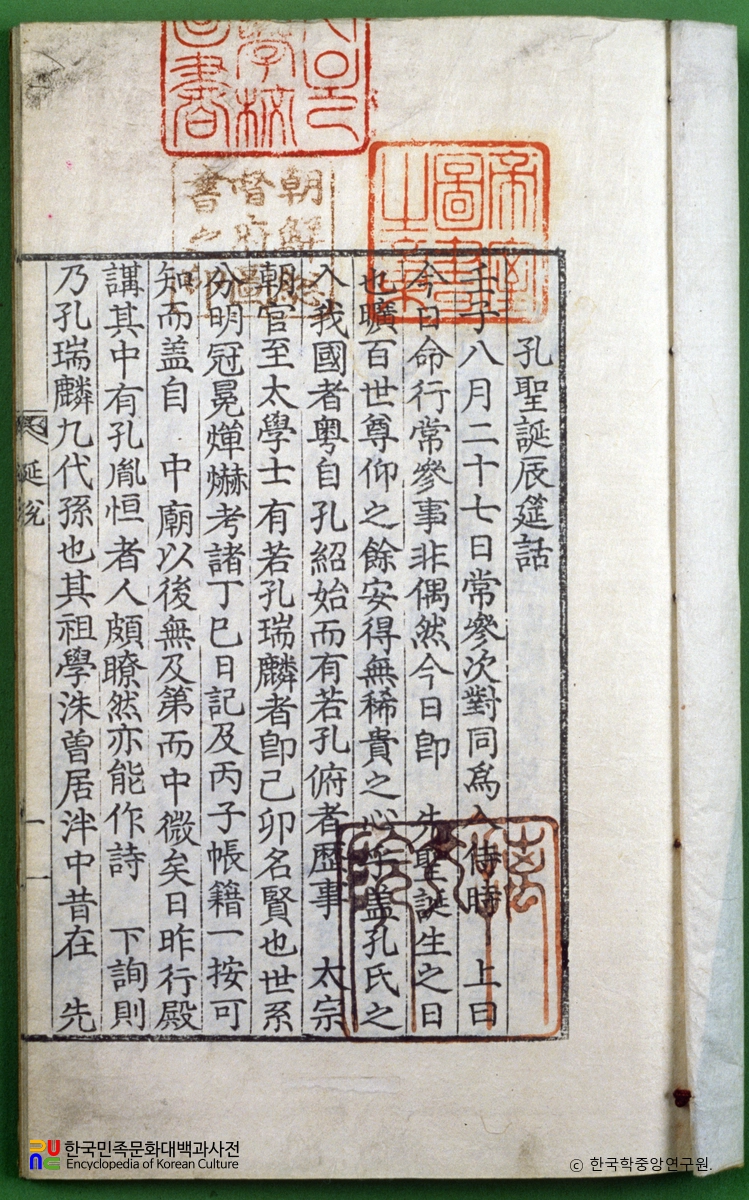 孔聖誕辰筵話
壬子八月二十七日常參次對同爲入侍時 上曰
今日命行常參事非偶然今日卽 先聖誕生之日
也曠百世尊仰之餘安得無稀貴之心乎盖孔氏之
入我國者粤自孔紹始而有若孔俯者歷事 太宗
朝官至太學士有若孔瑞麟者卽己卯名賢也世系
分明冠冕燀爀考諸丁巳日記及丙子帳籍一按可
知而盖自 中廟以後無及第而中微矣日昨行殿
講其中有孔胤恒者人頗瞭然亦能作詩 下詢則
乃孔瑞麟九代孫也其祖學洙曾居泮中昔在 先
誕筵說
一
帝室圖書之章
朝鮮總督府圖書之印
한국민족문화대백과사전
Encyclopedia of Korean Culture
© 한국학중앙연구원.